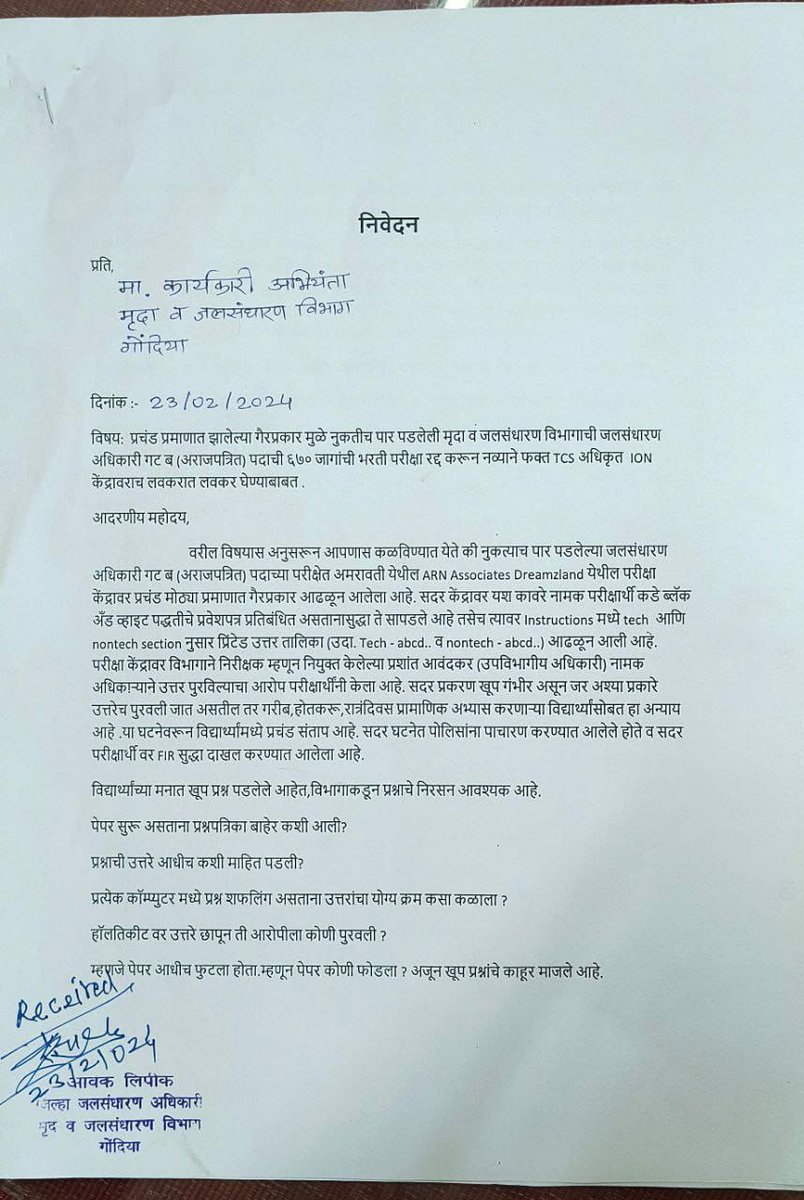 निवेदन
प्रति,
मा. कार्यकारी अभियंता
मृदा व जलसंधारण विभाग
गोंदिया
दिनांक :- 23/02/2024
विषय: प्रचंड प्रमाणात झालेल्या गैरप्रकार मुळे नुकतीच पार पडलेली मृदा व जलसंधारण विभागाची जलसंधारण
अधिकारी गट ब (अराजपत्रित) पदाची ६७० जागांची भरती परीक्षा रद्द करून नव्याने फक्त TCS अधिकृत ION
केंद्रावराच लवकरात लवकर घेण्याबाबत .
आदरणीय महोदय,
वरील विषयास अनुसरून आपणास कळविण्यात येते की नुकत्याच पार पडलेल्या जलसंधारण
अधिकारी गट ब (अराजपत्रित) पदाच्या परीक्षेत अमरावती येथील ARN Associates Dreamzland येथील परीक्षा
केंद्रावर प्रचंड मोठ्या प्रमाणात गैरप्रकार आढळून आलेला आहे. सदर केंद्रावर यश कावरे नामक परीक्षार्थी कडे ब्लॅक
अँड व्हाइट पद्धतीचे प्रवेशपत्र प्रतिबंधित असतानासुद्धा ते सापडले आहे तसेच त्यावर Instructions मध्ये tech आणि
nontech section नुसार प्रिंटेड उत्तर तालिका (उदा. Tech - abcd.. व nontech - abcd..) आढळून आली आहे.
परीक्षा केंद्रावर विभागाने निरीक्षक म्हणून नियुक्त केलेल्या प्रशांत आवंदकर (उपविभागीय अधिकारी) नामक
अधिकाऱ्याने उत्तर पुरविल्याचा आरोप परीक्षार्थींनी केला आहे. सदर प्रकरण खूप गंभीर असून जर अश्या प्रकारे
उत्तरेच पुरवली जात असतील तर गरीब,होतकरू,रात्रंदिवस प्रामाणिक अभ्यास करणाऱ्या विद्यार्थ्यांसोबत हा अन्याय
आहे .या घटनेवरून विद्यार्थ्यांमध्ये प्रचंड संताप आहे. सदर घटनेत पोलिसांना पाचारण करण्यात आलेले होते व सदर
परीक्षार्थी वर FIR सुद्धा दाखल करण्यात आलेला आहे.
विद्यार्थ्यांच्या मनात खूप प्रश्न पडलेले आहेत,विभागाकडून प्रश्नाचे निरसन आवश्यक आहे.
पेपर सुरू असताना प्रश्नपत्रिका बाहेर कशी आली?
प्रश्नाची उत्तरे आधीच कशी माहित पडली?
प्रत्येक कॉम्प्युटर मध्ये प्रश्न शफलिंग असताना उत्तरांचा योग्य क्रम कसा कळाला ?
हॉलतिकीट वर उत्तरे छापून ती आरोपीला कोणी पुरवली ?
म्हणजे पेपर आधीच फुटला होता.म्हणून पेपर कोणी फोडला ? अजून खूप प्रश्नांचे काहूर माजले आहे.
Received
23/2/024
आवक लिपीक
जिल्हा जलसंधारण अधिकारी
मृद व जलसंधारण विभाग
गोंदिया